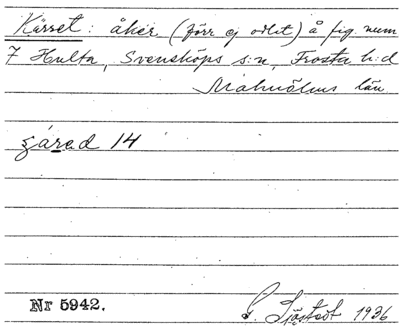 Kärret: åker (förr ej odlat) å fig. num
7 Hulta, Svensköps s:n, Frosta h:d
Malmöhus län
gáred 14
Nr 5942.
G. Sjöstedt 1936